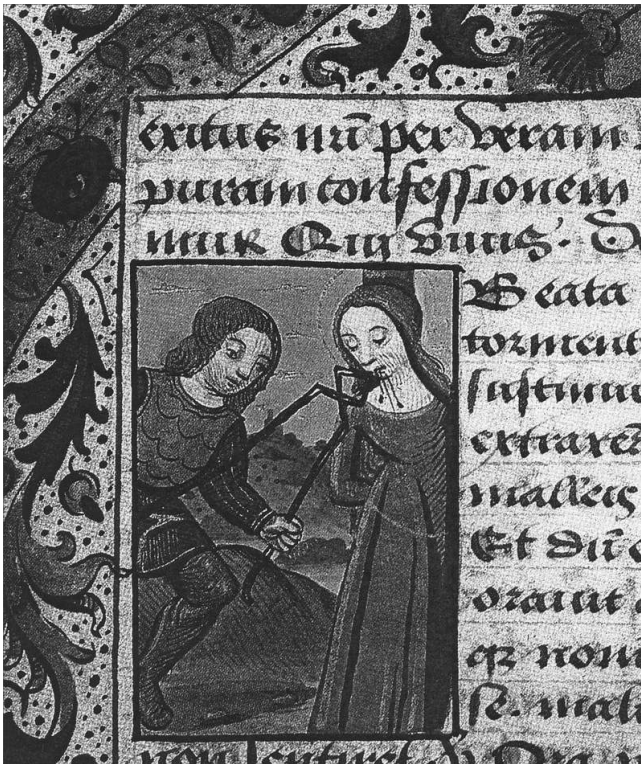 exitus nr̄i per veram
puram confessionem
mur Qui vivis. D
Beata
torment
sustinu
extraxer̄
malleis
Et dū
oravit
se. mal
non sentiret